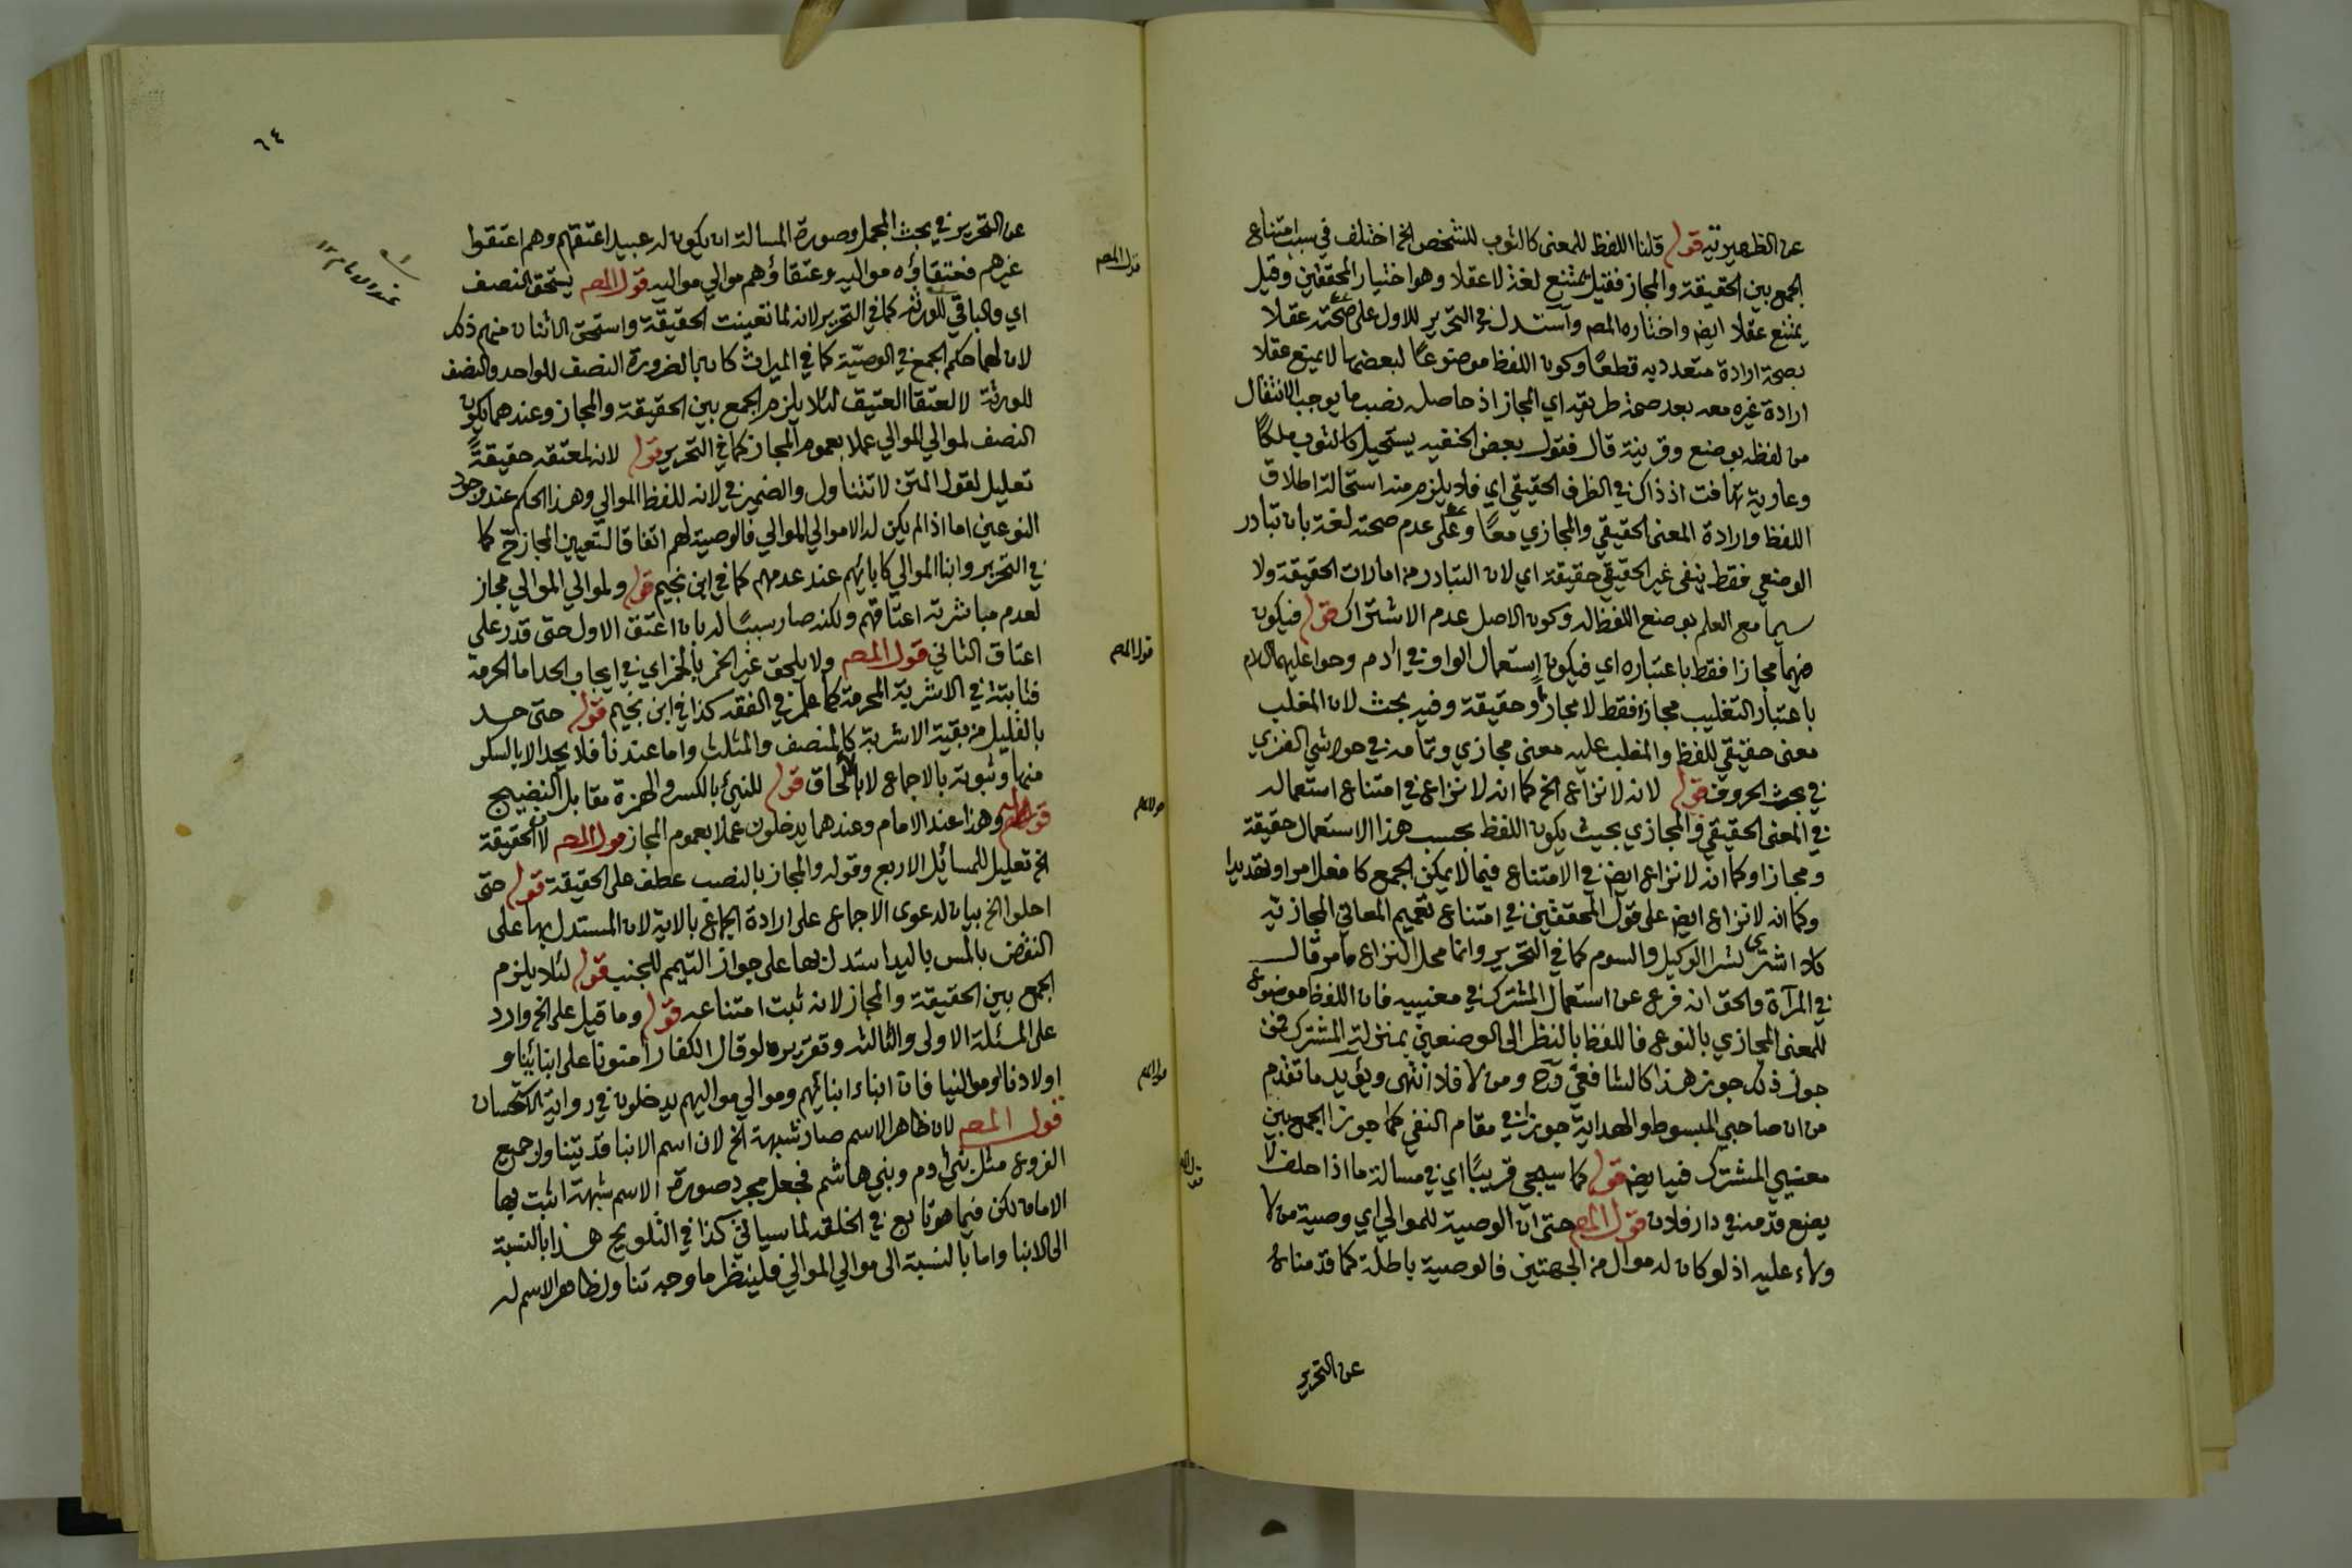 عن الظهيرية قوله قلنا اللفظ للمعنى كالثوب للشخص الخ اختلف في سبب امتناع
الجمع بين الحقيقة والمجاز فقيل يمتنع لغة لا عقلا وهو اختيار المحققين وقيل
يمتنع عقلا ايض واختاره المص واستدل في التحرير للاول على صحته عقلا
بصحة ارادة متعدد به قطعًا وكون اللفظ موضوعًا لبعضها لا يمنع عقلا
ارادة غيره معه بعد صحة طريقه اي المجاز اذ حاصله نصب ما يوجب الانتقال
من لفظه بوضع وقرينة قال فقول بعض الحنفيه يستحيل كالثوب ملكًا
وعارية تهافت اذ ذاك في الظرف الحقيقي اي فلا يلزم منه استحالة اطلاق
اللفظ وارادة المعنى الحقيقي والمجازي معًا وعلى عدم صحته لغة بان تبادر
الوضعي فقط ينفي غير الحقيقي حقيقة اي لان التبادر من امارات الحقيقة ولا
سيما مع العلم بوضع اللفظ له وكون الاصل عدم الاشتراك قوله فيكون
ضهما مجازا فقط باعتباره اي فيكون استعمال الواو في ادم وحوا عليهما السلام
باعتبار التغليب مجازا فقط لا مجازا وحقيقة وفيه بحث لان المغلب
معنى حقيقي للفظ والمغلب عليه معنى مجازي وتمامه في حواشي الفنري
في بحث الحروف قوله لانه لا نزاع الخ كما انه لا نزاع في امتناع استعماله
في المعنى الحقيقي والمجازي بحيث يكون اللفظ بحسب هذا الاستعمال حقيقة
ومجازا وكما انه لا نزاع ايض في الامتناع فيما لا يمكن الجمع كافعل امرا وتهديدا
وكما انه لا نزاع ايض على قول المحققين في امتناع تعميم المعاني المجازية
كلا اشتري بشرا الوكيل والسوم كما في التحرير وانما محل النزاع ما مر قال
في المرآة والحق انه فرع عن استعمال المشترك في معنييه فان اللفظ موضوع
للمعنى المجازي بالنوع فاللفظ بالنظر الى الوضعين بمنزلة المشترك فمن
جوز ذلك جوز هذا كالشافعي رح ومن لا فلا انتهى ويؤيد ما تقدم
من ان صاحبي المبسوط والهداية جوزا في مقام النفي كما جوزا الجمع بين
معنيي المشترك فيه ايض قوله كما سيجي قريبًا اي في مسالة ما اذا حلف لا
يضع قدمه في دار فلان قول المص حتى ان الوصية للموالي اي وصية من لا
ولاء عليه اذ لو كان له موال من الجهتين فالوصية باطلة كما قدمناه
عن التحرير
٦٤
عن التحرير في بحث المجمل وصورة المسالة ان يكون له عبيد اعتقهم وهم اعتقوا
غيرهم فعتقاؤه مواليه وعتقاؤهم موالي مواليه قول المص يستحق النصف
اي والباقي للورثة كما في التحرير لانه لما تعينت الحقيقة واستحق الاثنان منهم ذلك
لان لهما حكم الجمع في الوصيّة كما في الميراث كان بالضرورة النصف للواحد والنصف
للورثة لا لعتقا العتيق لئلا يلزم الجمع بين الحقيقة والمجاز وعندهما يكون
النصف لموالي الموالي عملا بعموم المجاز كما في التحرير قوله لانه لمعتقه حقيقةً
تعليل لقول المتن لا تتناول والضمير في لانه للفظ الموالي وهذا الحكم عند وجود
النوعين اما اذا لم يكن له الا موالي الموالي فالوصية لهم اتفاقا لتعيين المجاز ح كما
في التحرير وابنا الموالي كابائهم عند عدمهم كما في ابن نجيم قوله ولموالي الموالي مجاز
لعدم مباشرته اعتاقهم ولكنه صار سببًا له بان اعتق الاول حتى قدر على
اعتاق الثاني قول المص ولا يلحق غير الخمر بالخمر اي في ايجاب الحد اما الحرمة
فثابتة في الاشربة المحرمة كما علم في الفقه كذا في ابن نجيم قوله حتى حد
بالقليل من بقية الاشربة كالمنصف والمثلث واما عندنا فلا يحد الا بالسكر
منها وثبوته بالاجماع لا بالالحاق قوله للنيئ بالكسر والهمزة مقابل النضيج
قوله وهذا عند الامام وعندهما يدخلون عملا بعموم المجاز قول المص لان الحقيقة
الخ تعليل للمسائل الاربع وقوله والمجاز بالنصب عطف على الحقيقة قوله حتى
احلوا الخ بيان لدعوى الاجماع على ارادة الجماع بالاية لان المستدل بها على
النقض بالمس باليد استدل بها على جواز التيمم للجنب قوله لئلا يلزم
الجمع بين الحقيقة والمجاز لانه ثبت امتناعه قوله وما قيل على الخ وارد
على المسئلة الاولى والثالثه وتقريره لو قال الكفار أمنونا على ابنائنا و
اولادنا وموالينا فان ابناء ابنائهم وموالي مواليهم يدخلون في رواية الاستحسان
قول المص لان ظاهر الاسم صار شبهة الخ لان اسم الابنا قد يتناول جميع
الفروع مثل بني ادم وبني هاشم فجعل مجرد صورة الاسم شبهة اثبت بها
الامان لكن فيما هو تابع في الخلقه لما سياتي كذا في التلويح هذا بالنسبة
الى الابنا واما بالنسبة الى موالي الموالي فلينظر ما وجه تناول ظاهر الاسم له
قول المص
قول المص
قول المص